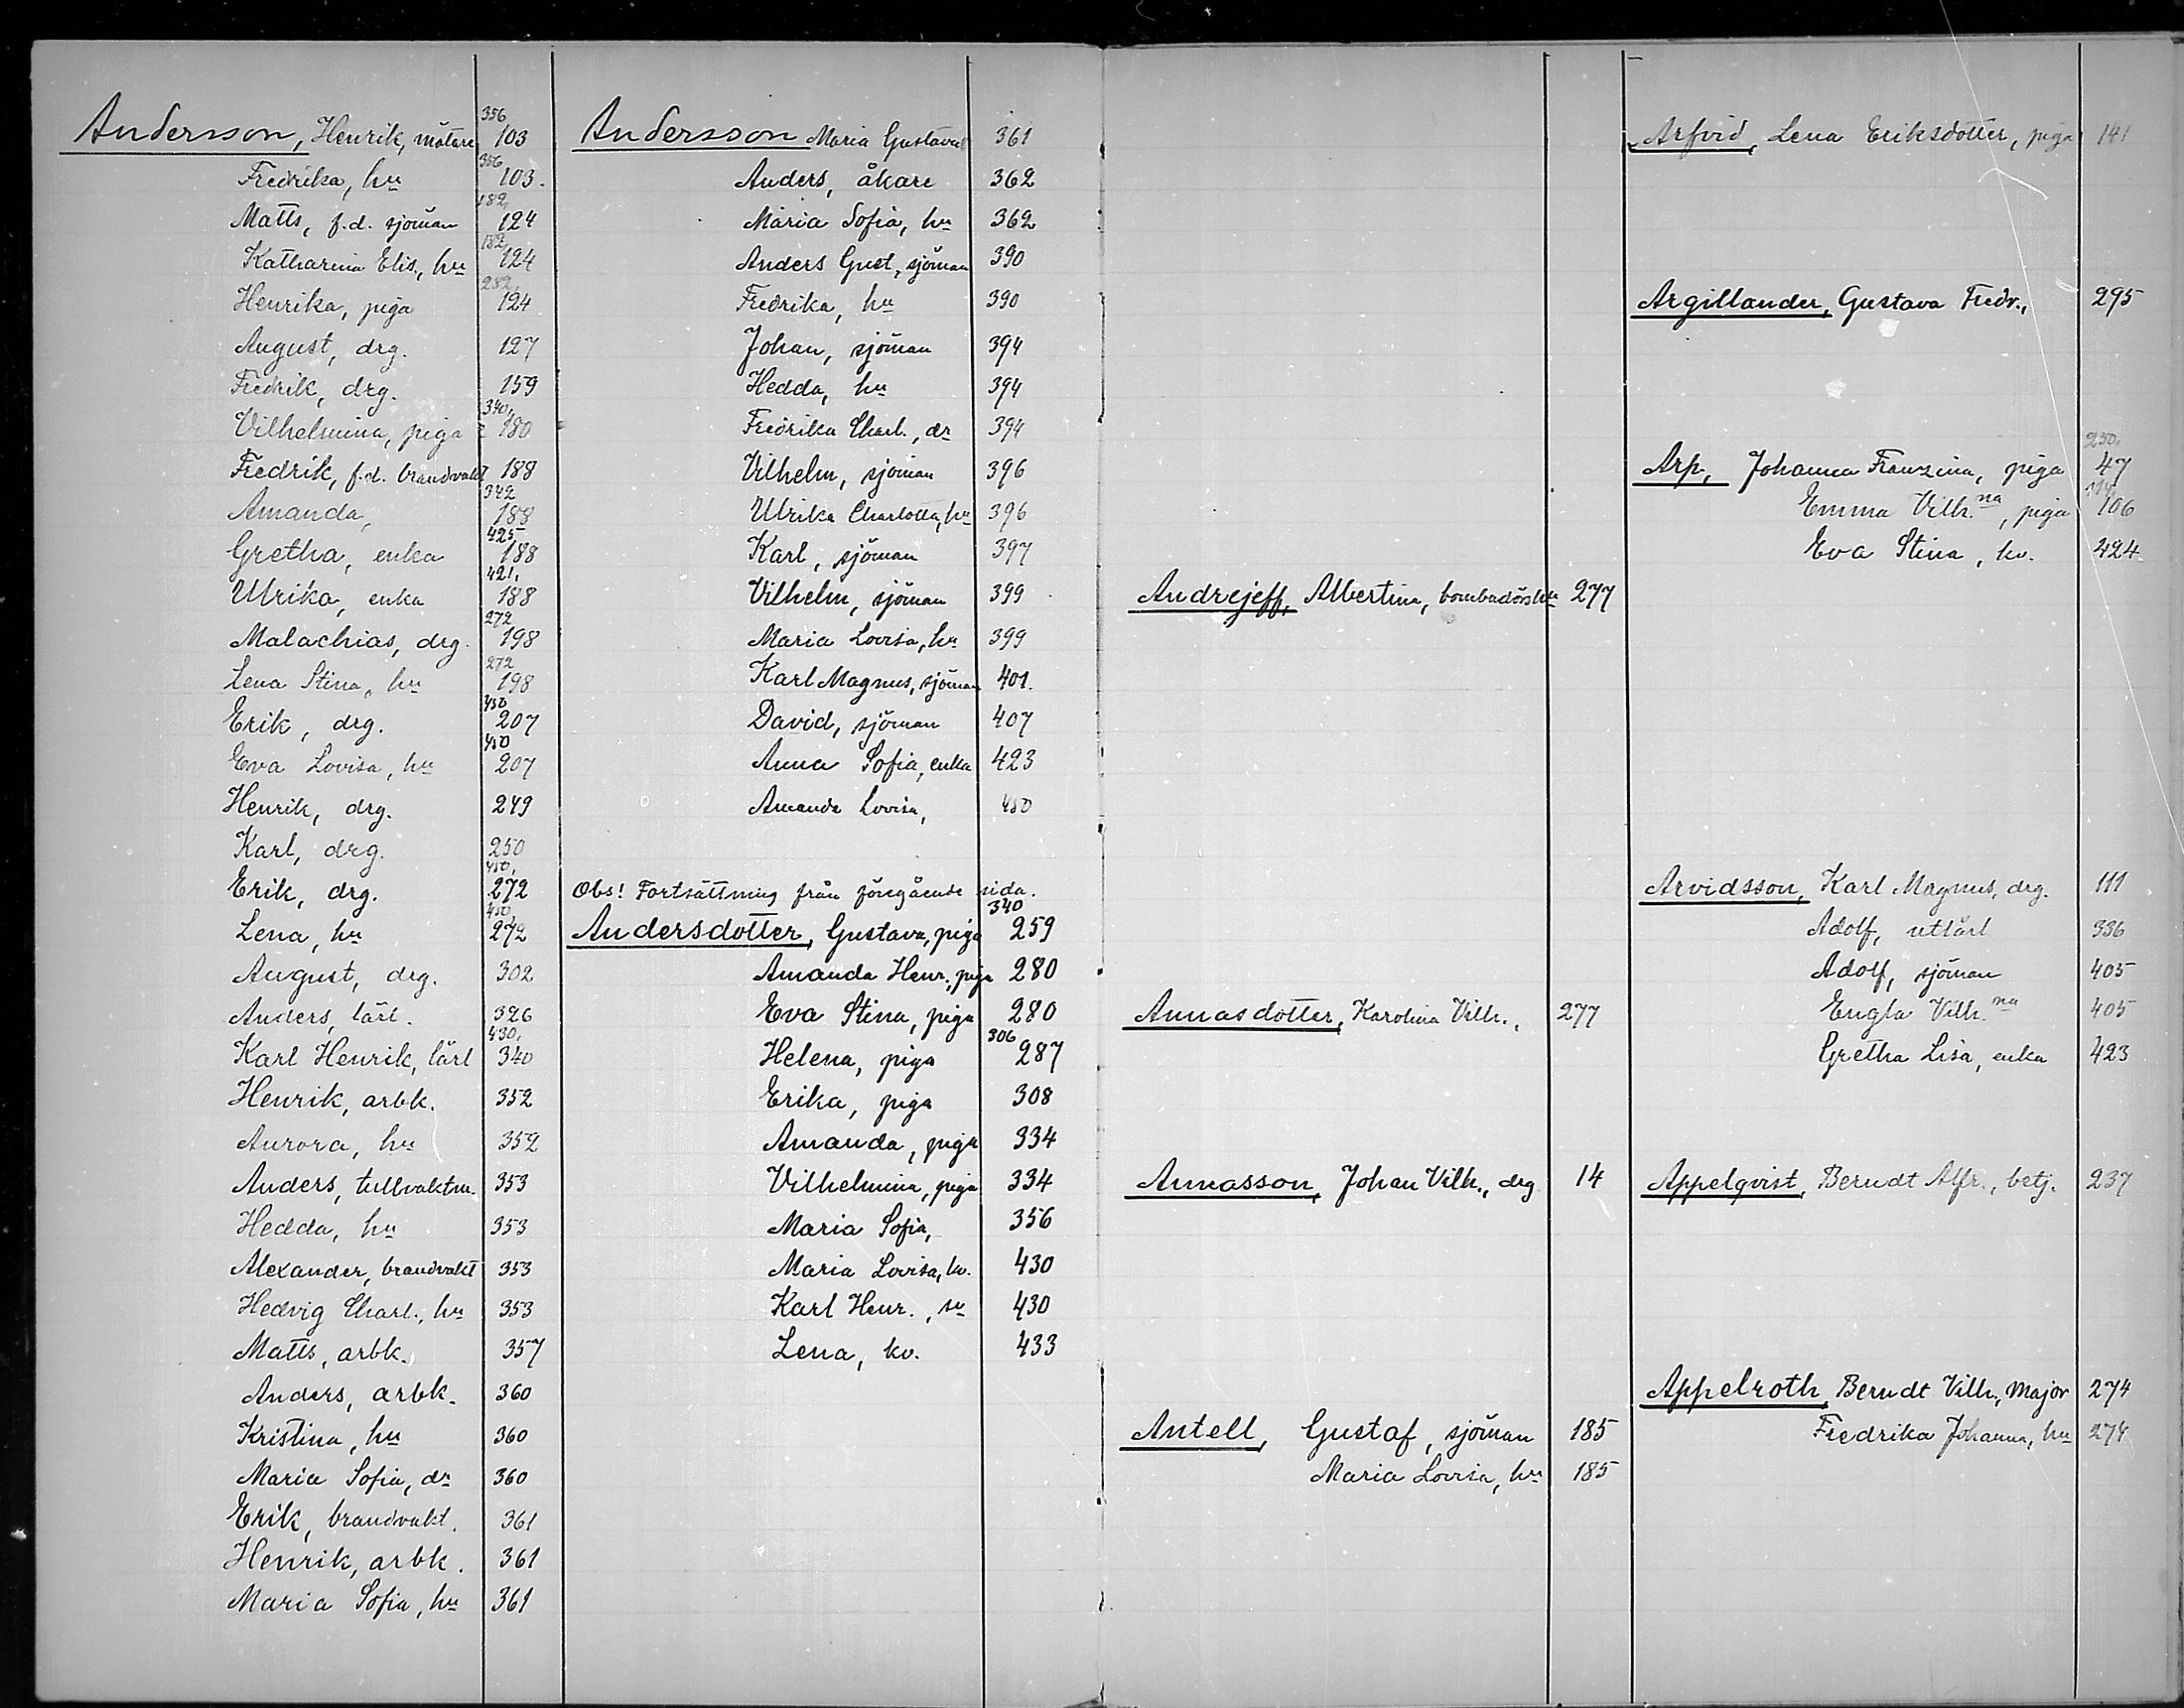 Andersson, Henrik, mätare 356 103
Fredrika, hu 356 103.
Matts, f.d. sjöman 182, 124
Katharina Elis., hu 182, 124
Henrika, piga 282, 124
August, drg. 127
Fredrik, drg. 159
Vilhelmina, piga 340, 180
Fredrik, f.d. brandvakt 188
Amanda, 342 188
Gretha, enka 425 188
Ulrika, enka 421, 188
Malachias, drg. 272 198
Lena Stina, hu 272 198
Erik, drg. 450 207
Eva Lovisa, hu 450 207
Henrik, drg. 249
Karl, drg. 250
Erik, drg. 450, 272
Lena, hu 450, 272
August, drg. 302
Anders, lärl. 326
Karl Henrik, lärl 430, 340
Henrik, arbk. 352
Aurora, hu 352
Anders, tullvaktm. 353
Hedda, hu 353
Alexander, brandvakt 353
Hedvig Charl., hu 353
Matts, arbk. 357
Anders, arbk. 360
Kristina, hu 360
Maria Sofia, dr 360
Erik, brandvakt. 361
Henrik, arbk. 361
Maria Sofia, hu 361
Andersson Maria Gustava 361
Anders, åkare 362
Maria Sofia, hu 362
Anders Gust, sjöman 390
Fredrika, hu 390
Johan, sjöman 394
Hedda, hu 394
Fredrika Charl., dr 394
Vilhelm, sjöman 396
Ulrika Charlotta, hu 396
Karl, sjöman 397
Vilhelm, sjöman 399
Maria Lovisa, hu 399
Karl Magnus, sjöman 401.
David, sjöman 407
Anna Sofia, enka 423
Amanda Lovisa, 450
Obs! Fortsättning från föregående sida.
Andersdotter, Gustava, piga 340 259
Amanda Henr., piga 280
Eva Stina, piga 280
Helena, piga 306 287
Erika, piga 308
Amanda, piga 334
Vilhelmina, piga 334
Maria Sofia, 356
Maria Lovisa, kv. 430
Karl Henr., sn 430
Lena, kv. 433
Andrejeff, Albertina, bombadörshu 277
Annasdotter, Karolina Vilh., 277
Annasson, Johan Vilh., drg 14
Antell, Gustaf, sjöman 185
Maria Lovisa, hu 185
Arfvid, Lena Eriksdotter, piga 141
Argillander, Gustava Fredr., 295
Arp, Johanna Franzina, piga 250, 47
Emma Vilh.na, piga 106
Eva Stina, kv. 424
Arvidsson, Karl Magnus, drg. 111
Adolf, utlärl 336
Adolf, sjöman 405
Engla Vilh.na 405
Gretha Lisa, enka 423
Appelqvist, Berndt Alfr., betj. 237
Appelroth, Berndt Vilh., Major 274
Fredrika Johanna, hu 274